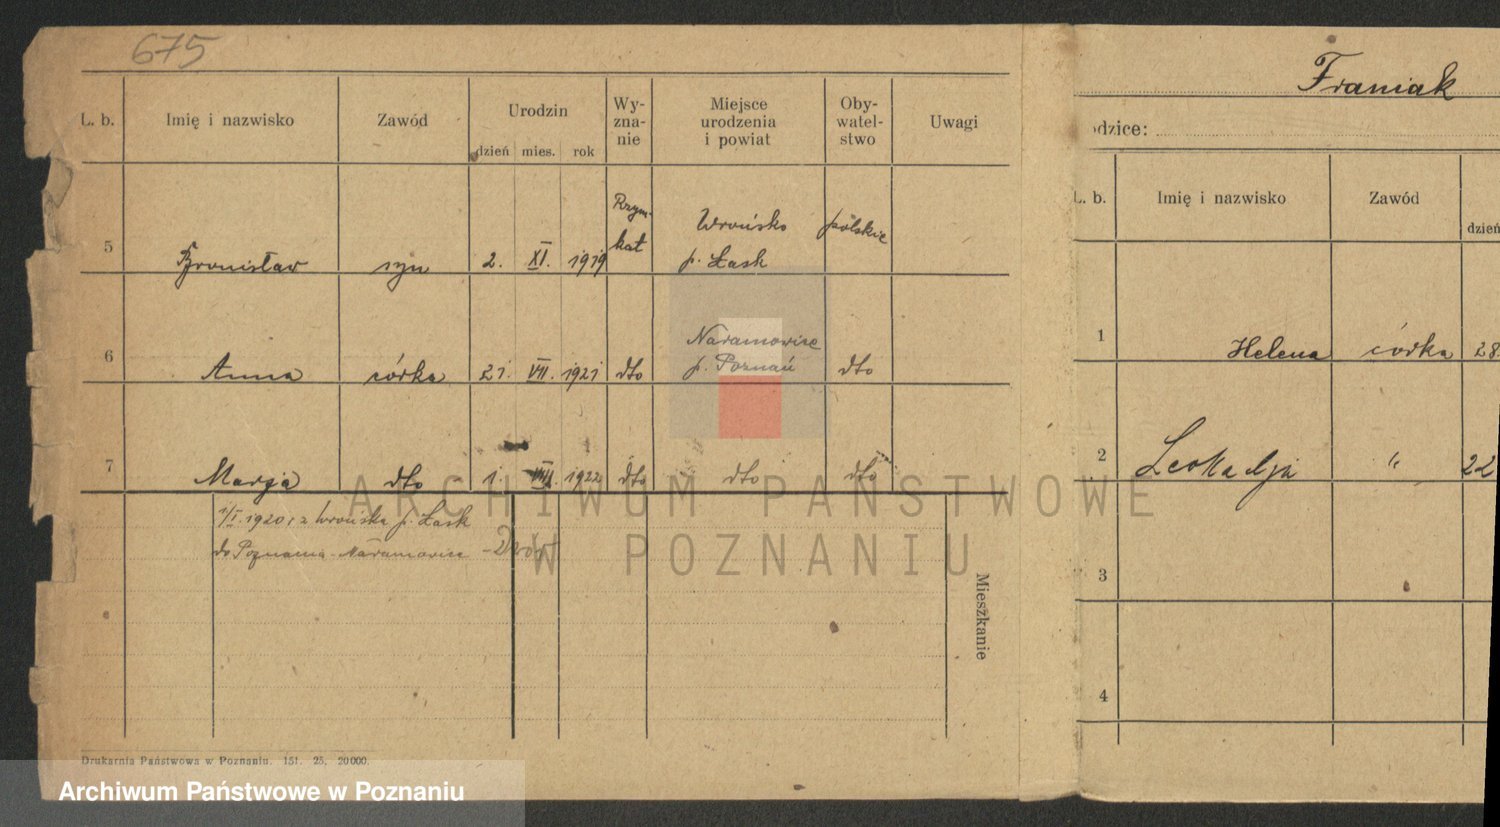 675
L. b. Imię i nazwisko Zawód Urodzin dzień mies. rok Wy-zna-nie Miejsce urodzenia i powiat Oby-watel-stwo Uwagi
5 Bronisław syn 2. XI. 1919 Rzym-kat Wrońsko p. Łask polskie
6 Anna córka 21. VII. 1921 dto Naramowice p. Poznań dto
7 Marja dto 1. VIII 1922 dto dto dto
1/I. 1920, z Wrońska p. Łask
do Poznania-Naramowice - Dwór
Mieszkanie
Drukarnia Państwowa w Poznaniu. 151. 25, 20000.
Franiak
odzice:
L. b. Imię i nazwisko Zawód dzień
1 Helena córka 28
2 Leokadja " 22
3
4
ARCHIWUM PAŃSTWOWE
W POZNANIU
Archiwum Państwowe w Poznaniu